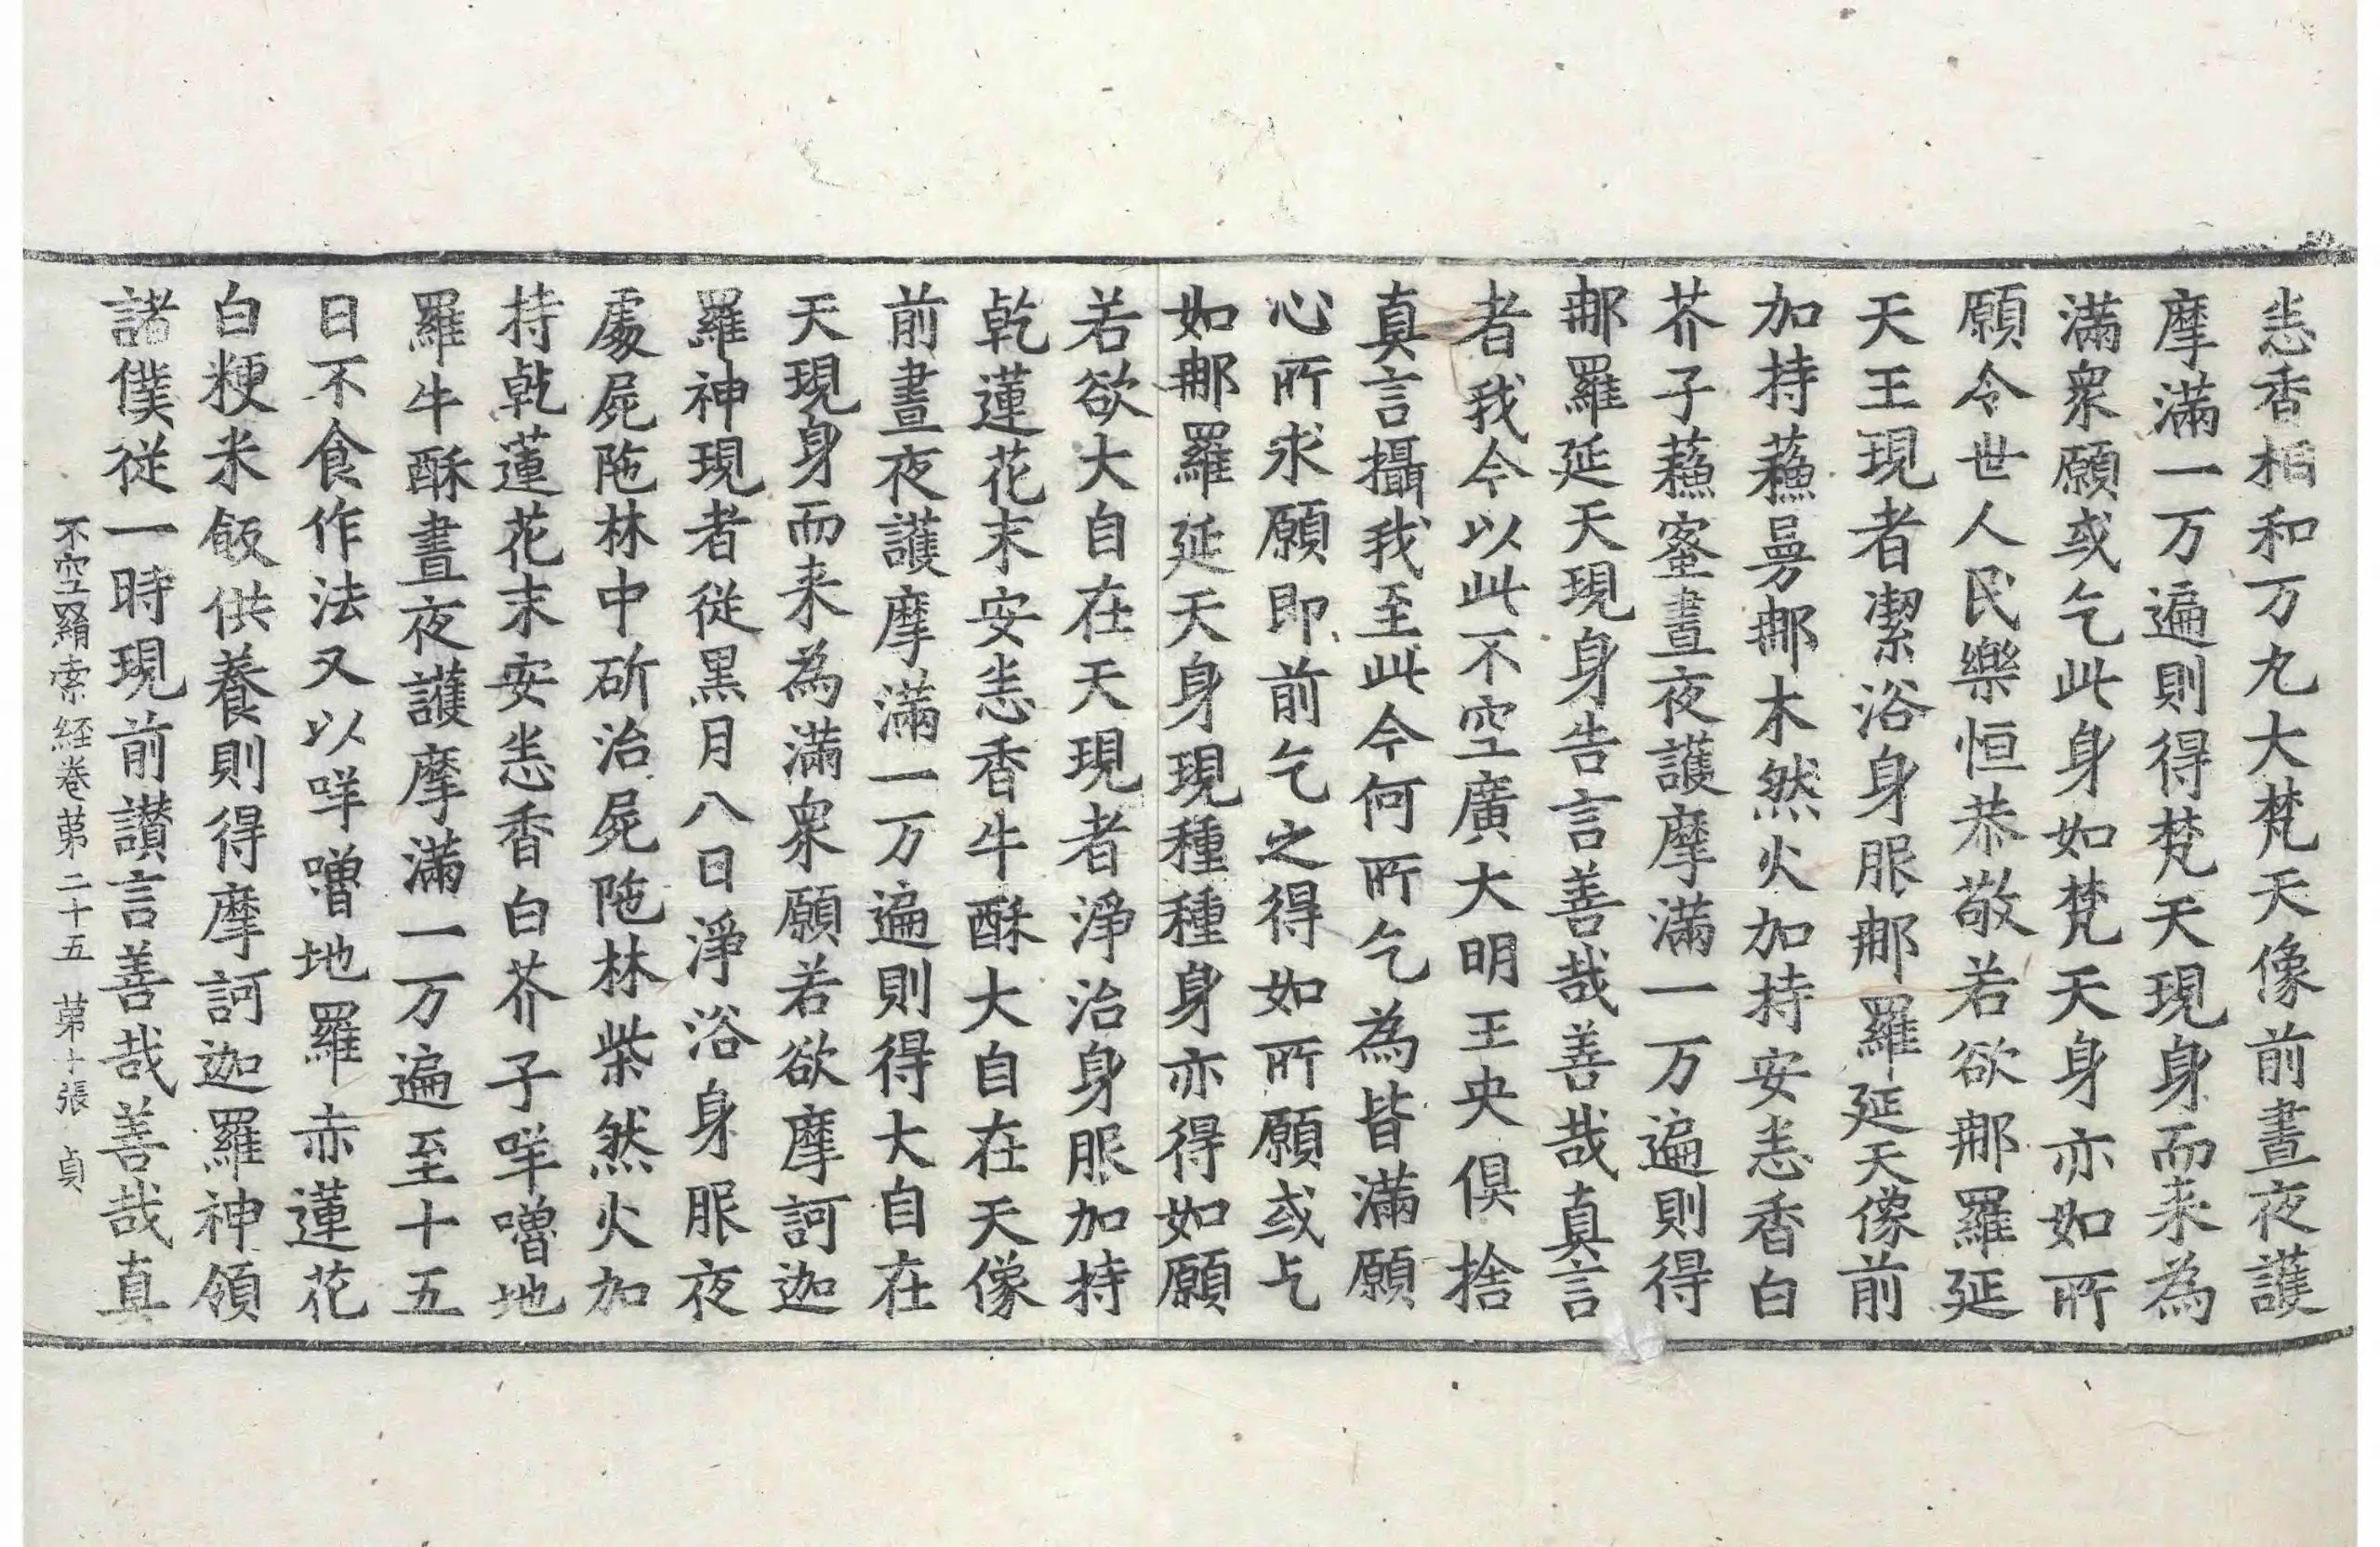 恙香相和万丸大梵天像前晝夜護
摩滿一万遍則得梵天現身而来為
滿衆願或乞此身如梵天身亦如所
願令世人民樂恒恭敬若欲那羅延
天王現者潔浴身服那羅延天像前
加持蘓曼那木然火加持安悉香白
芥子蘓蜜晝夜護摩滿一万遍則得
那羅延天現身告言善哉善哉真言
者我今以此不空廣大明王央俱捨
真言攝我至此今何所乞為皆滿願
心所求願即前乞之得如所願或乞
如那羅延天身現種種身亦得如願
若欲大自在天現者淨治身服加持
乾蓮花末安悉香牛酥大自在天像
前晝夜護摩滿一万遍則得大自在
天現身而来為滿衆願若欲摩訶迦
羅神現者從黒月八日淨浴身服夜
處屍陁林中斫治屍陁林柴然火加
持乾蓮花末安悉香白芥子咩噜地
羅牛酥晝夜護摩滿一万遍至十五
日不食作法又以咩噜地羅赤蓮花
白粳米飯供養則得摩訶迦羅神領
諸僕從一時現前讃言善哉善哉真
不空羂索経巻苐二十五 苐十張 貞